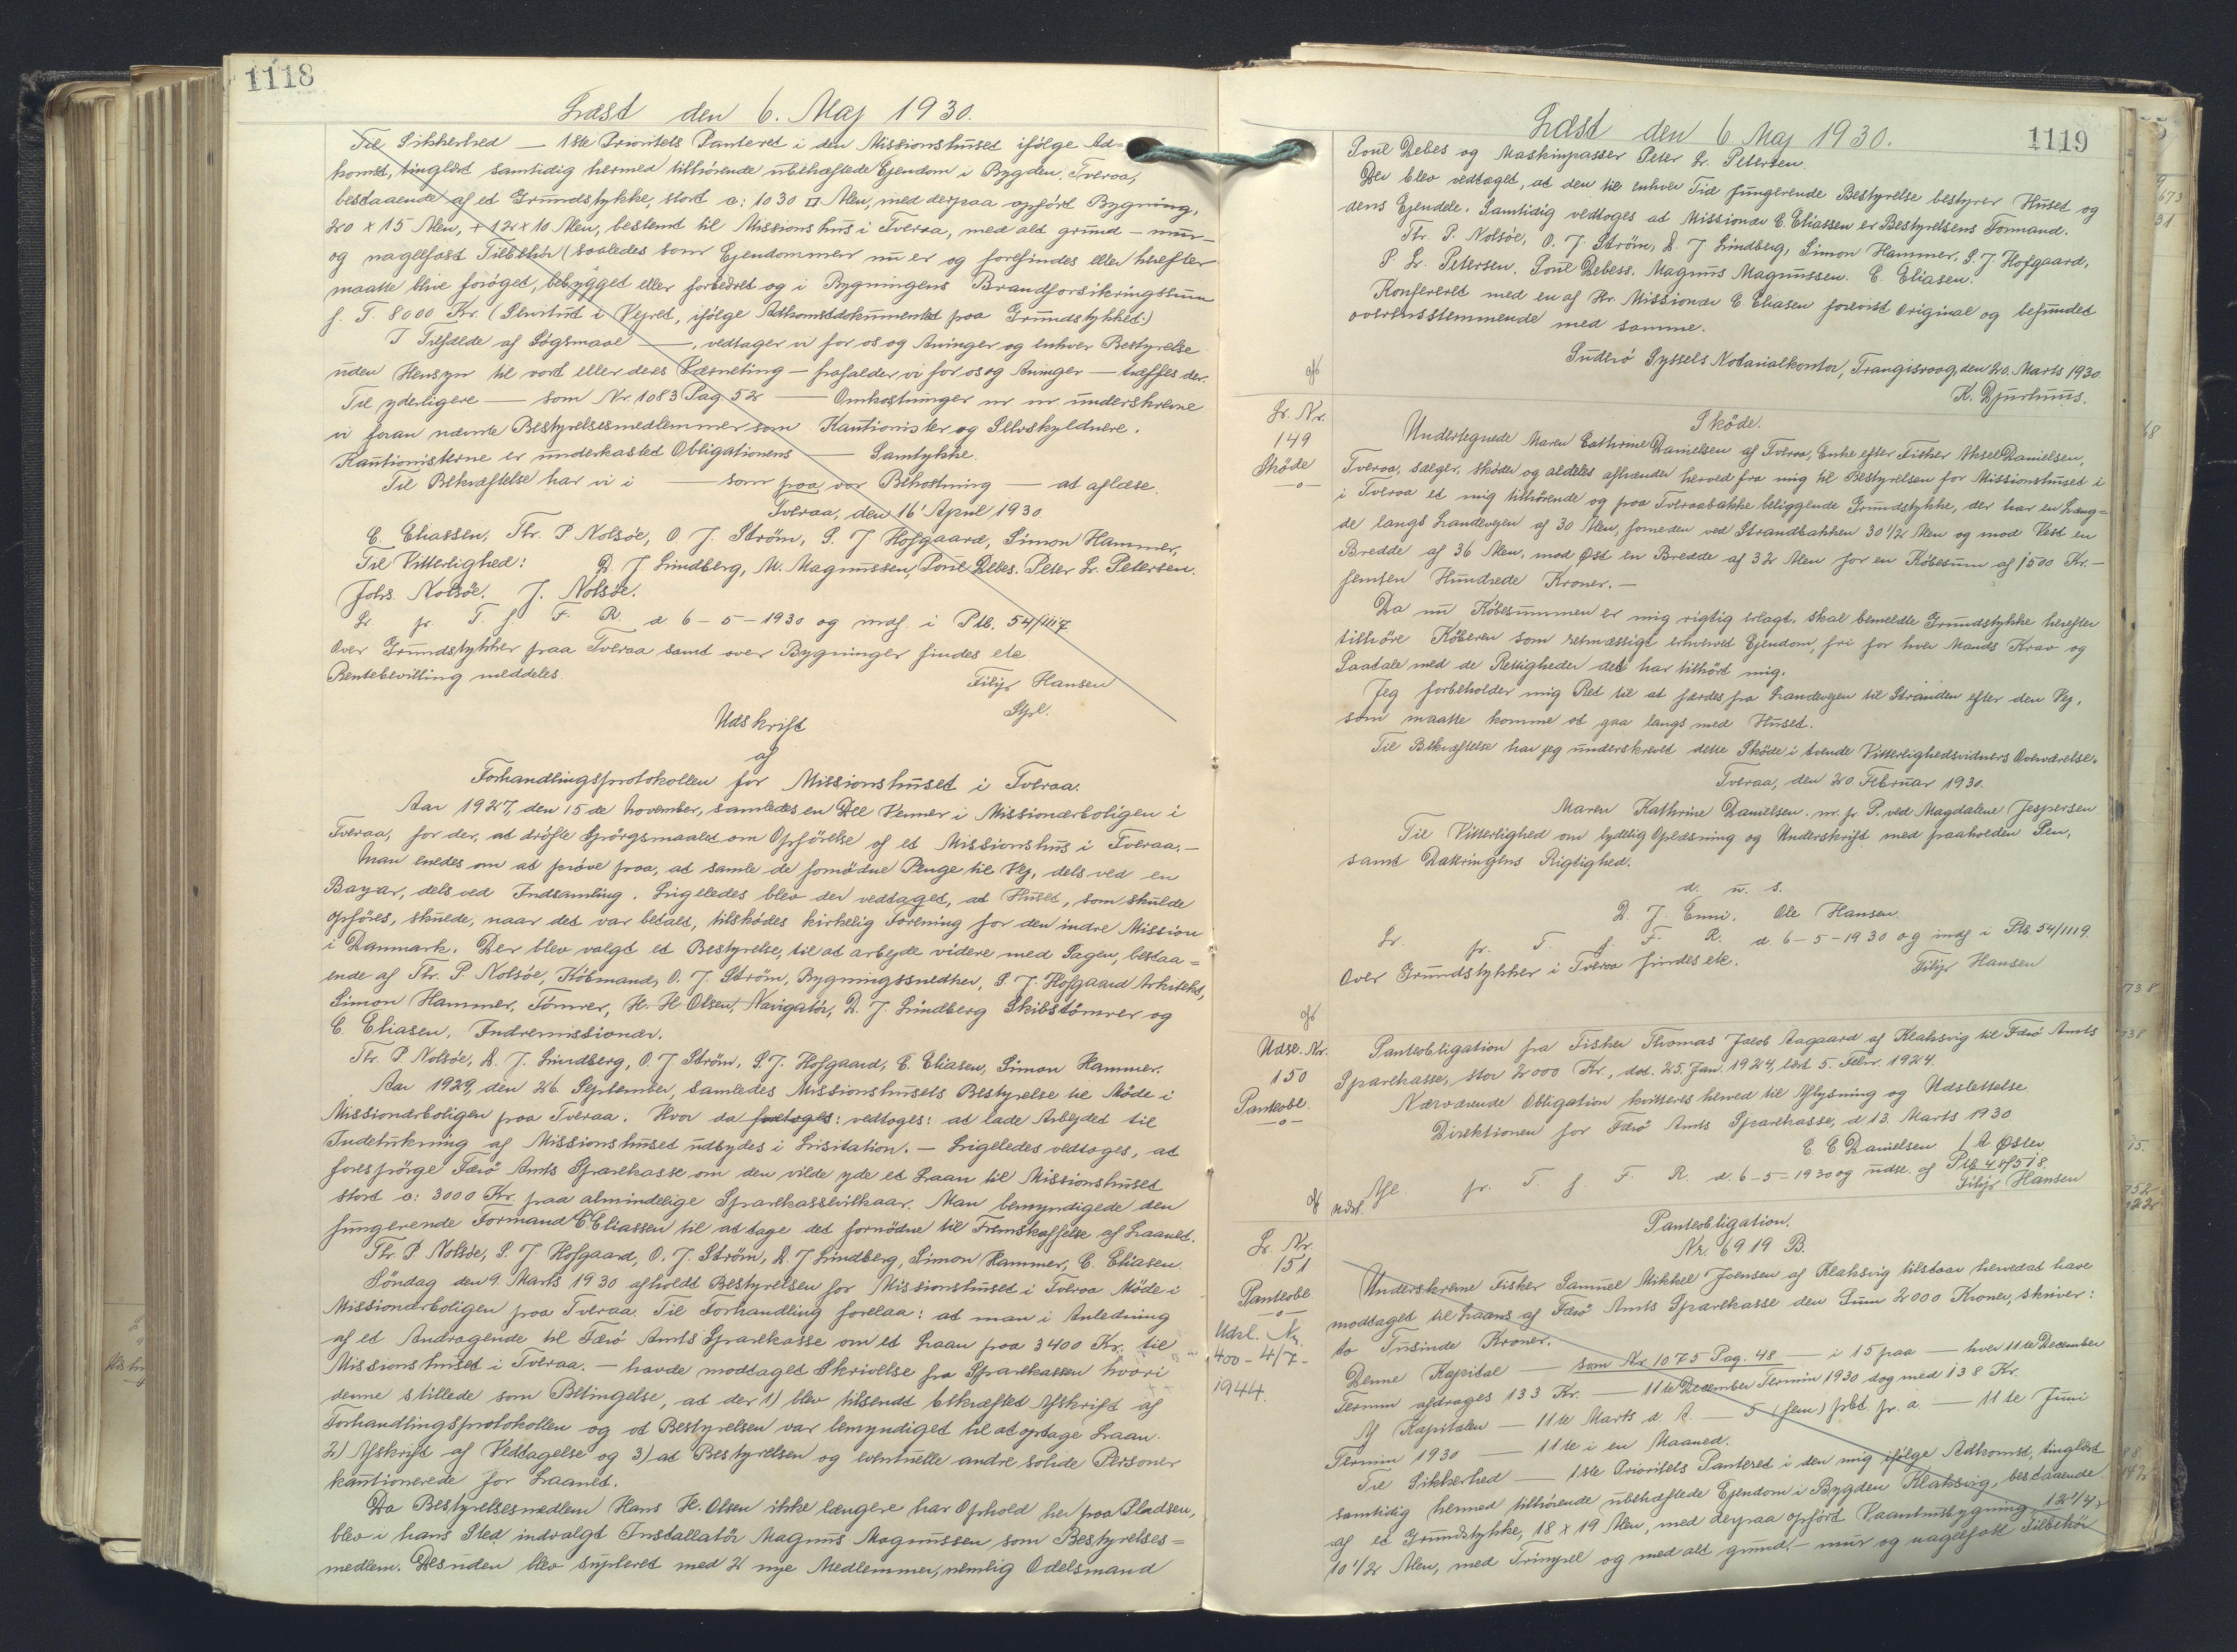 1118
Læst den 6. Maj 1930.
Til Sikkerhed — 1ste Prioritets Panteret i den Missionshuset ifølge Ad=
komst, tinglæst samtidig hermed tilhørende ubehæftede Ejendom i Bygden Tveraa,
bestaaende af et Grundstykke, stort o: 1030 □ Alen, med derpaa opført Bygning,
20 x 15 Alen, + 12 x 10 Alen, bestemt til Missionshus i Tveraa, med alt grund - mur-
og nagelfast Tilbehör (saaledes som Ejendommen nu er og forefindes eller herefter
maatte blive forøget, bebygget eller forbedret og i Bygningens Brandforsikringssum
f. T. 8000 Kr. (Servitut i Vejret, ifölge Adkomstdokumentet paa Grundstykket.)
I Tilfælde af Søgsmaal —, vedtager vi for os og Arvinger og enhver Bestyrelse
uden Hensyn til vort eller deres Værneting — frafalder vi for os og Arvinger — træffes der.
Til yderligere — som Nr 1083 Pag 52 — Omkostninger m. m. underskrevne
vi foran nævnte Bestyrelsesmedlemmer som Kautionister og Selvskyldnere.
Kautionisterne er underkastet Obligationens — Samtykke.
Til Bekræftelse har vi i — som paa vor Bekostning — at aflæse.
Tveraa, den 16' April 1930
C. Eliassen, Thr. P Nolsøe, O. J. Ström, S. J. Hofgaard, Simon Hammer,
Til Vitterlighed: D. J Lindberg, M. Magnussen, Poul Debes. Peter Lr. Petersen.
Johs. Nolsøe. J. Nolsøe.
Lr. fr. T. f. F. R. d 6-5-1930 og indf. i Ptb. 54/1117
Over Grundstykker paa Tveraa samt over Bygninger findes etc
Rentebevilling meddeles.
Filip Hansen
Stfl.
Udskrift
af
Forhandlingsprotokollen for Missionshuset i Tveraa.
Aar 1927, den 15de November, samledes en Del Venner i Missionærboligen i
Tveraa, for der, at dröfte Spörgsmaalet om Opförelse af et Missionshus i Tveraa.-
Man enedes om at pröve paa, at samle de fornödne Penge til Vej, dels ved en
Bazar, dels ved Indsamling. Ligeledes blev der vedtaget, at Huset, som skulde
opföres, skulde, naar det var betalt, tilskødes kirkelig Forening for den indre Mission
i Danmark. Der blev valgt et Bestyrelse, til at arbejde videre med Sagen, bestaa=
ende af Thr. P. Nolsøe, Købmand, O. J. Ström, Bygningssnedker, S. J. Hofgaard Arkitekt,
Simon Hammer, Tømrer, H. H Olsen, Navigatör, D. J. Lindberg Skibstømrer og
C. Eliasen, Indremissionær.
Thr. P. Nolsøe, D. J. Lindberg, O. J. Ström, S. J. Hofgaard, C. Eliasen, Simon Hammer.
Aar 1929, den 26 September, samledes Missionshusets Bestyrelse til Möde i
Missionærboligen paa Tveraa. Hvor da foretoges: vedtoges: at lade Arbejdet til
Indetükning af Missionshuset udbydes i Lisitation. — Ligeledes vedtoges, at
forespörge Færö Amts Sparekasse om den vilde yde et Laan til Missionshuset
stort o: 3000 Kr. paa almindelige Sparekassevilkaar. Man bemyndigede den
fungerende Formand C Eliassen til at tage det fornödne til Fremskaffelse af Laanet.
Thr. P Nolsøe, S. J. Hofgaard, O. J. Ström, D. J Lindberg, Simon Hammer, C. Eliasen
Söndag den 9. Marts 1930 afholdt Bestyrelsen for Missionshuset i Tveraa Möde i
Missionærboligen paa Tveraa. Til Forhandling forelaa: at man i Anledning
af et Andragende til Færö Amts Sparekasse om et Laan paa 3400 Kr. til
Missionshuset i Tveraa. — havde modtaget Skrivelse fra Sparekassen hvori
denne stillede som Betingelse, at der 1) blev tilsendt bekræftet Afskrift af
Forhandlingsprotokollen og at Bestyrelsen var bemyndiget til at optage Laan.
2) Afskrift af Vedtagelse og 3) at Bestyrelsen og eventuelle andre solide Personer
kautionerede for Laanet.
Da Bestyrelsesmedlem Hans H. Olsen ikke længere har Ophold her paa Pladsen,
blev i hans Sted indvalgt Installatör Magnus Magnussen, som Bestyrelses=
medlem. Desuden blev supleret med 2 nye Medlemmer, nemlig Odelsmand
1119
Læst den 6 Maj 1930.
Poul Debes og Maskinpasser Peter Lr. Petersen.
Der blev vedtaget, at den til enhver Tid fungerende Bestyrelse bestyrer Huset og
dens Ejendele. Samtidig vedtoges at Missionær C. Eliassen er Bestyrelsens Formand.
Thr. P. Nolsøe, O. J. Ström, D. J Lindberg, Simon Hammer, S. J Hofgaard,
P Lr. Petersen. Poul Debess. Magnus Magnussen. C. Eliasen.
Konfereret med en af Hr. Missionær C. Eliasen forevist Original og befundet
overensstemmende med samme.
Suderö Syssels Notarialkontor, Trangisvaag, den 20. Marts 1930.
K. Djurhuus.
Lr. Nr.
149
Sköde
—o—
Sköde.
Undertegnede Maren Cathrine Danielsen af Tveraa, Enke efter Fisker Aksel Danielsen,
Tveraa, sælger, sköder og aldeles afhænder herved fra mig til Bestyrelsen for Missionshuset i
i Tveraa et mig tilhørende og paa Tveraabakke beliggende Grundstykke, der har en Læng=
de langs Landevejen af 30 Alen, forneden ved Strandbakken 30 1/2 Alen og mod Vest en
Bredde af 36 Alen, mod Øst en Bredde af 32 Alen for en Købesum af 1500 Kr.—
femten Hundrede Kroner. —
Da nu Købesummen er mig rigtig erlagt, skal bemeldte Grundstykke herefter
tilhöre Köberen som retmæssigt erhvervet Ejendom, fri for hver Mands Krav og
Paatale med de Rettigheder det har tilhört mig.
Jeg forbeholder mig Ret til at færdes fra Landevejen til Stranden efter den Vej,
som maatte komme at gaa langs med Huset.
Til Bekræftelse har jeg underskrevet dette Sköde i tvende Vitterlighedsvidners Overværelse.
Tveraa, den 20 Februar 1930.
Maren Kathrine Danielsen. m. f. P. ved Magdalene Jespersen
Til Vitterlighed om lydelig Oplæsning og Underskrift med paaholden Pen,
samt Dateringens Rigtighed.
d. u. s.
D. J. Enni. Ole Hansen.
Lr. fr. T. f. F. R. d. 6-5-1930 og indf i Ptb. 54/1119.
Over Grundstykker i Tveraa findes etc.
Filip Hansen
Udsl. Nr.
150
Panteobl.
—o—
Panteobligation fra Fisker Thomas Jacob Aagaard af Klaksvig til Færö Amts
Sparekasse, stor 2000 Kr., dat. 25. Jan. 1924, læst 5. Febr. 1924.
Nærværende Obligation kvitteres herved til Aflysning og Udslettelse
Direktionen for Færö Amts Sparekasse, d 13. Marts 1930
C C Danielsen / A Øster
Afl. fr. T. f. F. R. d. 6-5-1930 og udsl. af Ptb 48/518.
Filip Hansen
udsl.
Lr. Nr.
151
Panteobl
—o—
Udsl. Nr.
400 - 4/7 -
1944.
Panteobligation.
Nr. 6919 B.
Underskrevne Fisker Samuel Mikkel Joensen af Klaksvig tilstaar herved at have
modtaget til Laans af Færö Amts Sparekasse den Sum 2000 Kroner, skriver:
to Tusinde Kroner.
Denne Kapital — som Nr 1075 Pag. 48 — i 15 paa — hver 11te December
Termin afdrages 133 Kr. — 11te December Termin 1930 dog med 138 Kr.
Af Kapitalen — 11te Marts d. A. — 5 (fem) pCt pr. a. — 11te Juni
Termin 1930 — 11te i en Maaned.
Til Sikkerhed — 1ste Prioritets Panteret i den mig ifølge Adkomst, tinglæst
samtidig hermed tilhørende ubehæftede Ejendom i Bygden Klaksvig, bestaaende
af et Grundstykke, 18 x 19 Alen, med derpaa opført Vaaningsbygning 12 1/4 x
10 1/2 Alen, med Tringsel og med alt grund,- mur og nagelfast Tilbehör